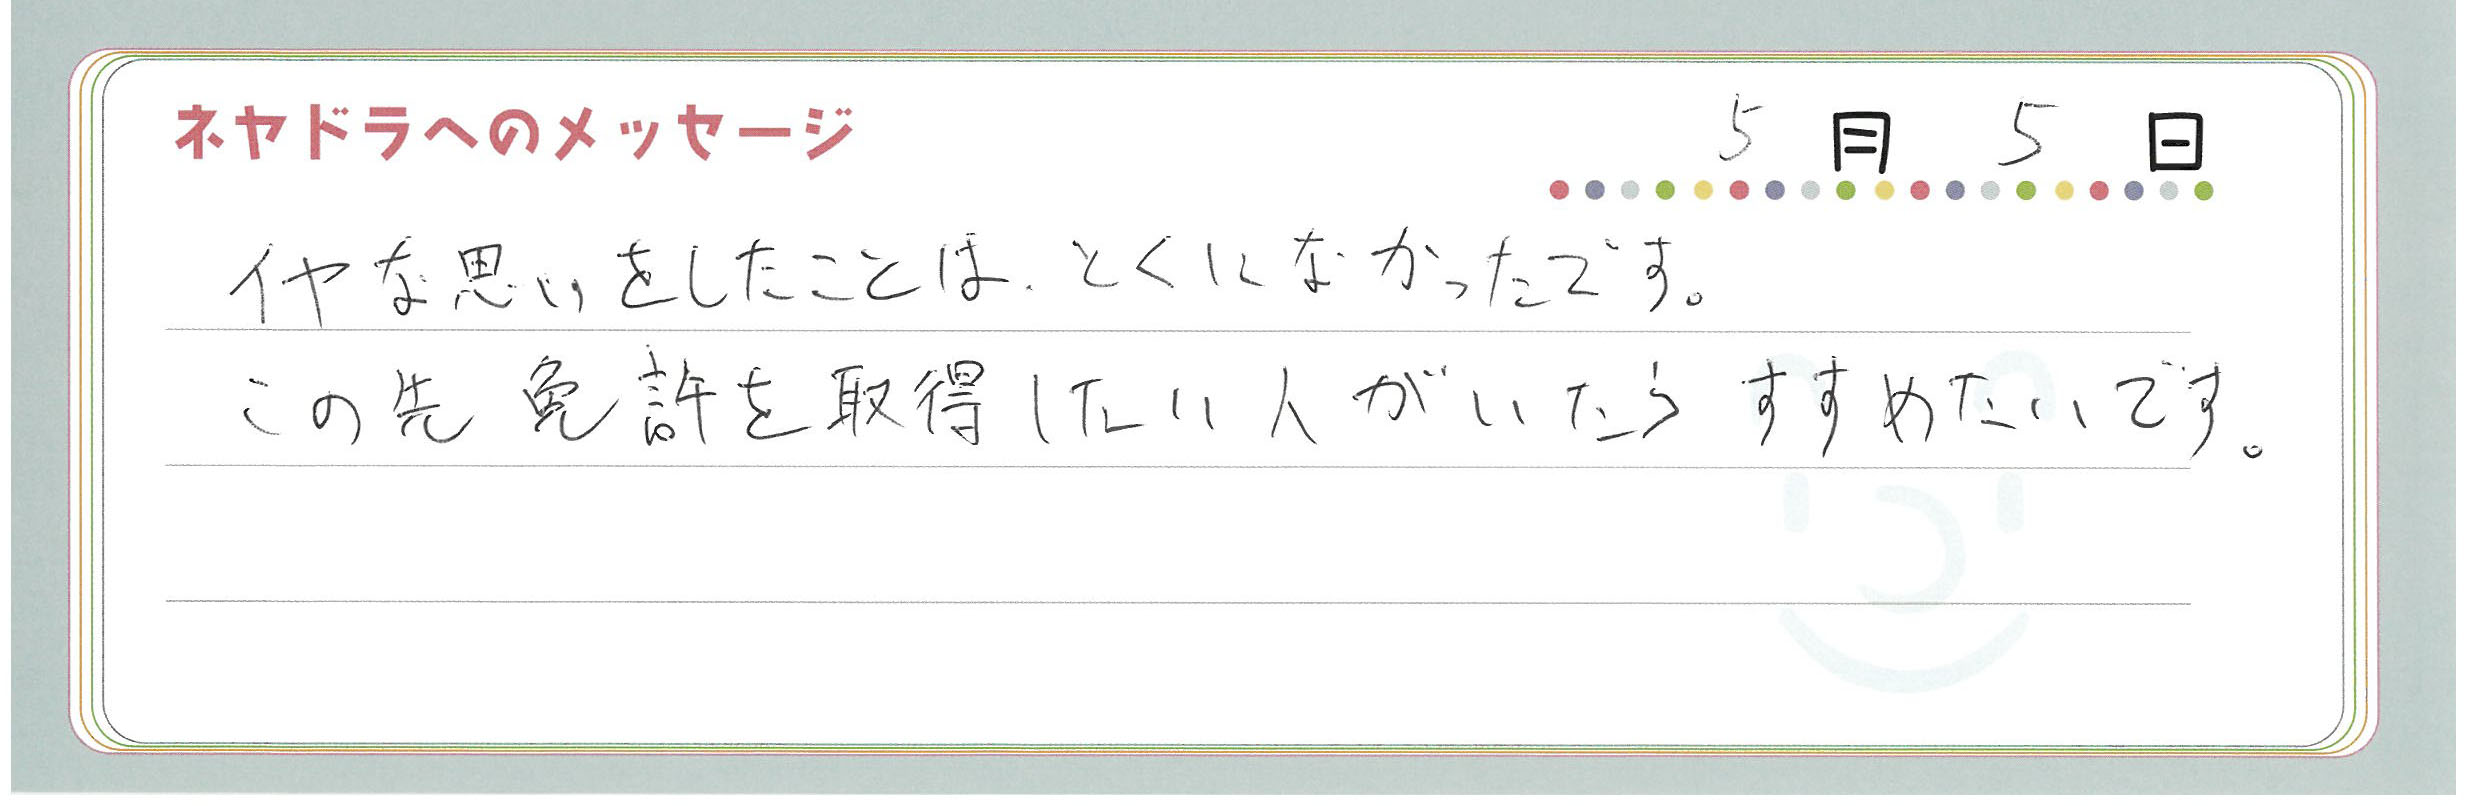 ネヤドラへのメッセージ 5月 5日
イヤな思いをしたことは、とくになかったです。
この先免許を取得したい人がいたらすすめたいです。